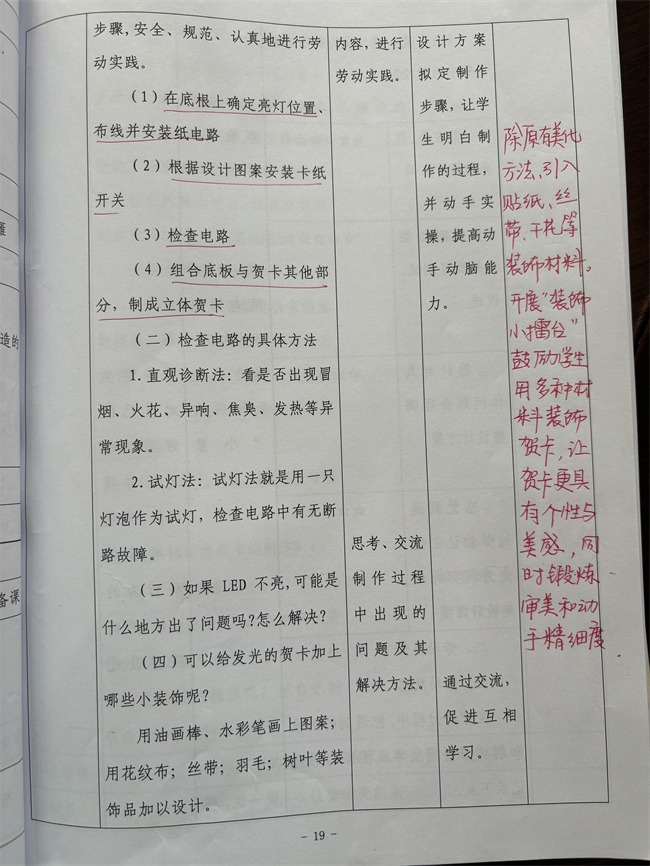 步骤,安全、规范、认真地进行劳
动实践。
（1）在底根上确定亮灯位置、
布线并安装纸电路
（2）根据设计图案安装卡纸
开关
（3）检查电路
（4）组合底板与贺卡其他部
分，制成立体贺卡
（二）检查电路的具体方法
1.直观诊断法：看是否出现冒
烟、火花、异响、焦臭、发热等异
常现象。
2.试灯法：试灯法就是用一只
灯泡作为试灯，检查电路中有无断
路故障。
（三）如果 LED 不亮,可能是
什么地方出了问题吗?怎么解决?
（四）可以给发光的贺卡加上
哪些小装饰呢？
用油画棒、水彩笔画上图案；
用花纹布；丝带；羽毛；树叶等装
饰品加以设计。
内容，进行
劳动实践。
思考、交流
制作过程
中出现的
问题及其
解决方法。
设计方案
拟定制作
步骤，让学
生明白制
作的过程，
并动手实
操，提高动
手动脑能
力。
通过交流，
促进互相
学习。
除原有美化
方法,引入
贴纸、丝
带、干花等
装饰材料。
开展“装饰
小擂台”
鼓励学生
用多种材
料装饰
贺卡，让
贺卡更具
有个性与
美感，同
时锻炼
审美和动
手精细度.
造的
备课
- 19 -